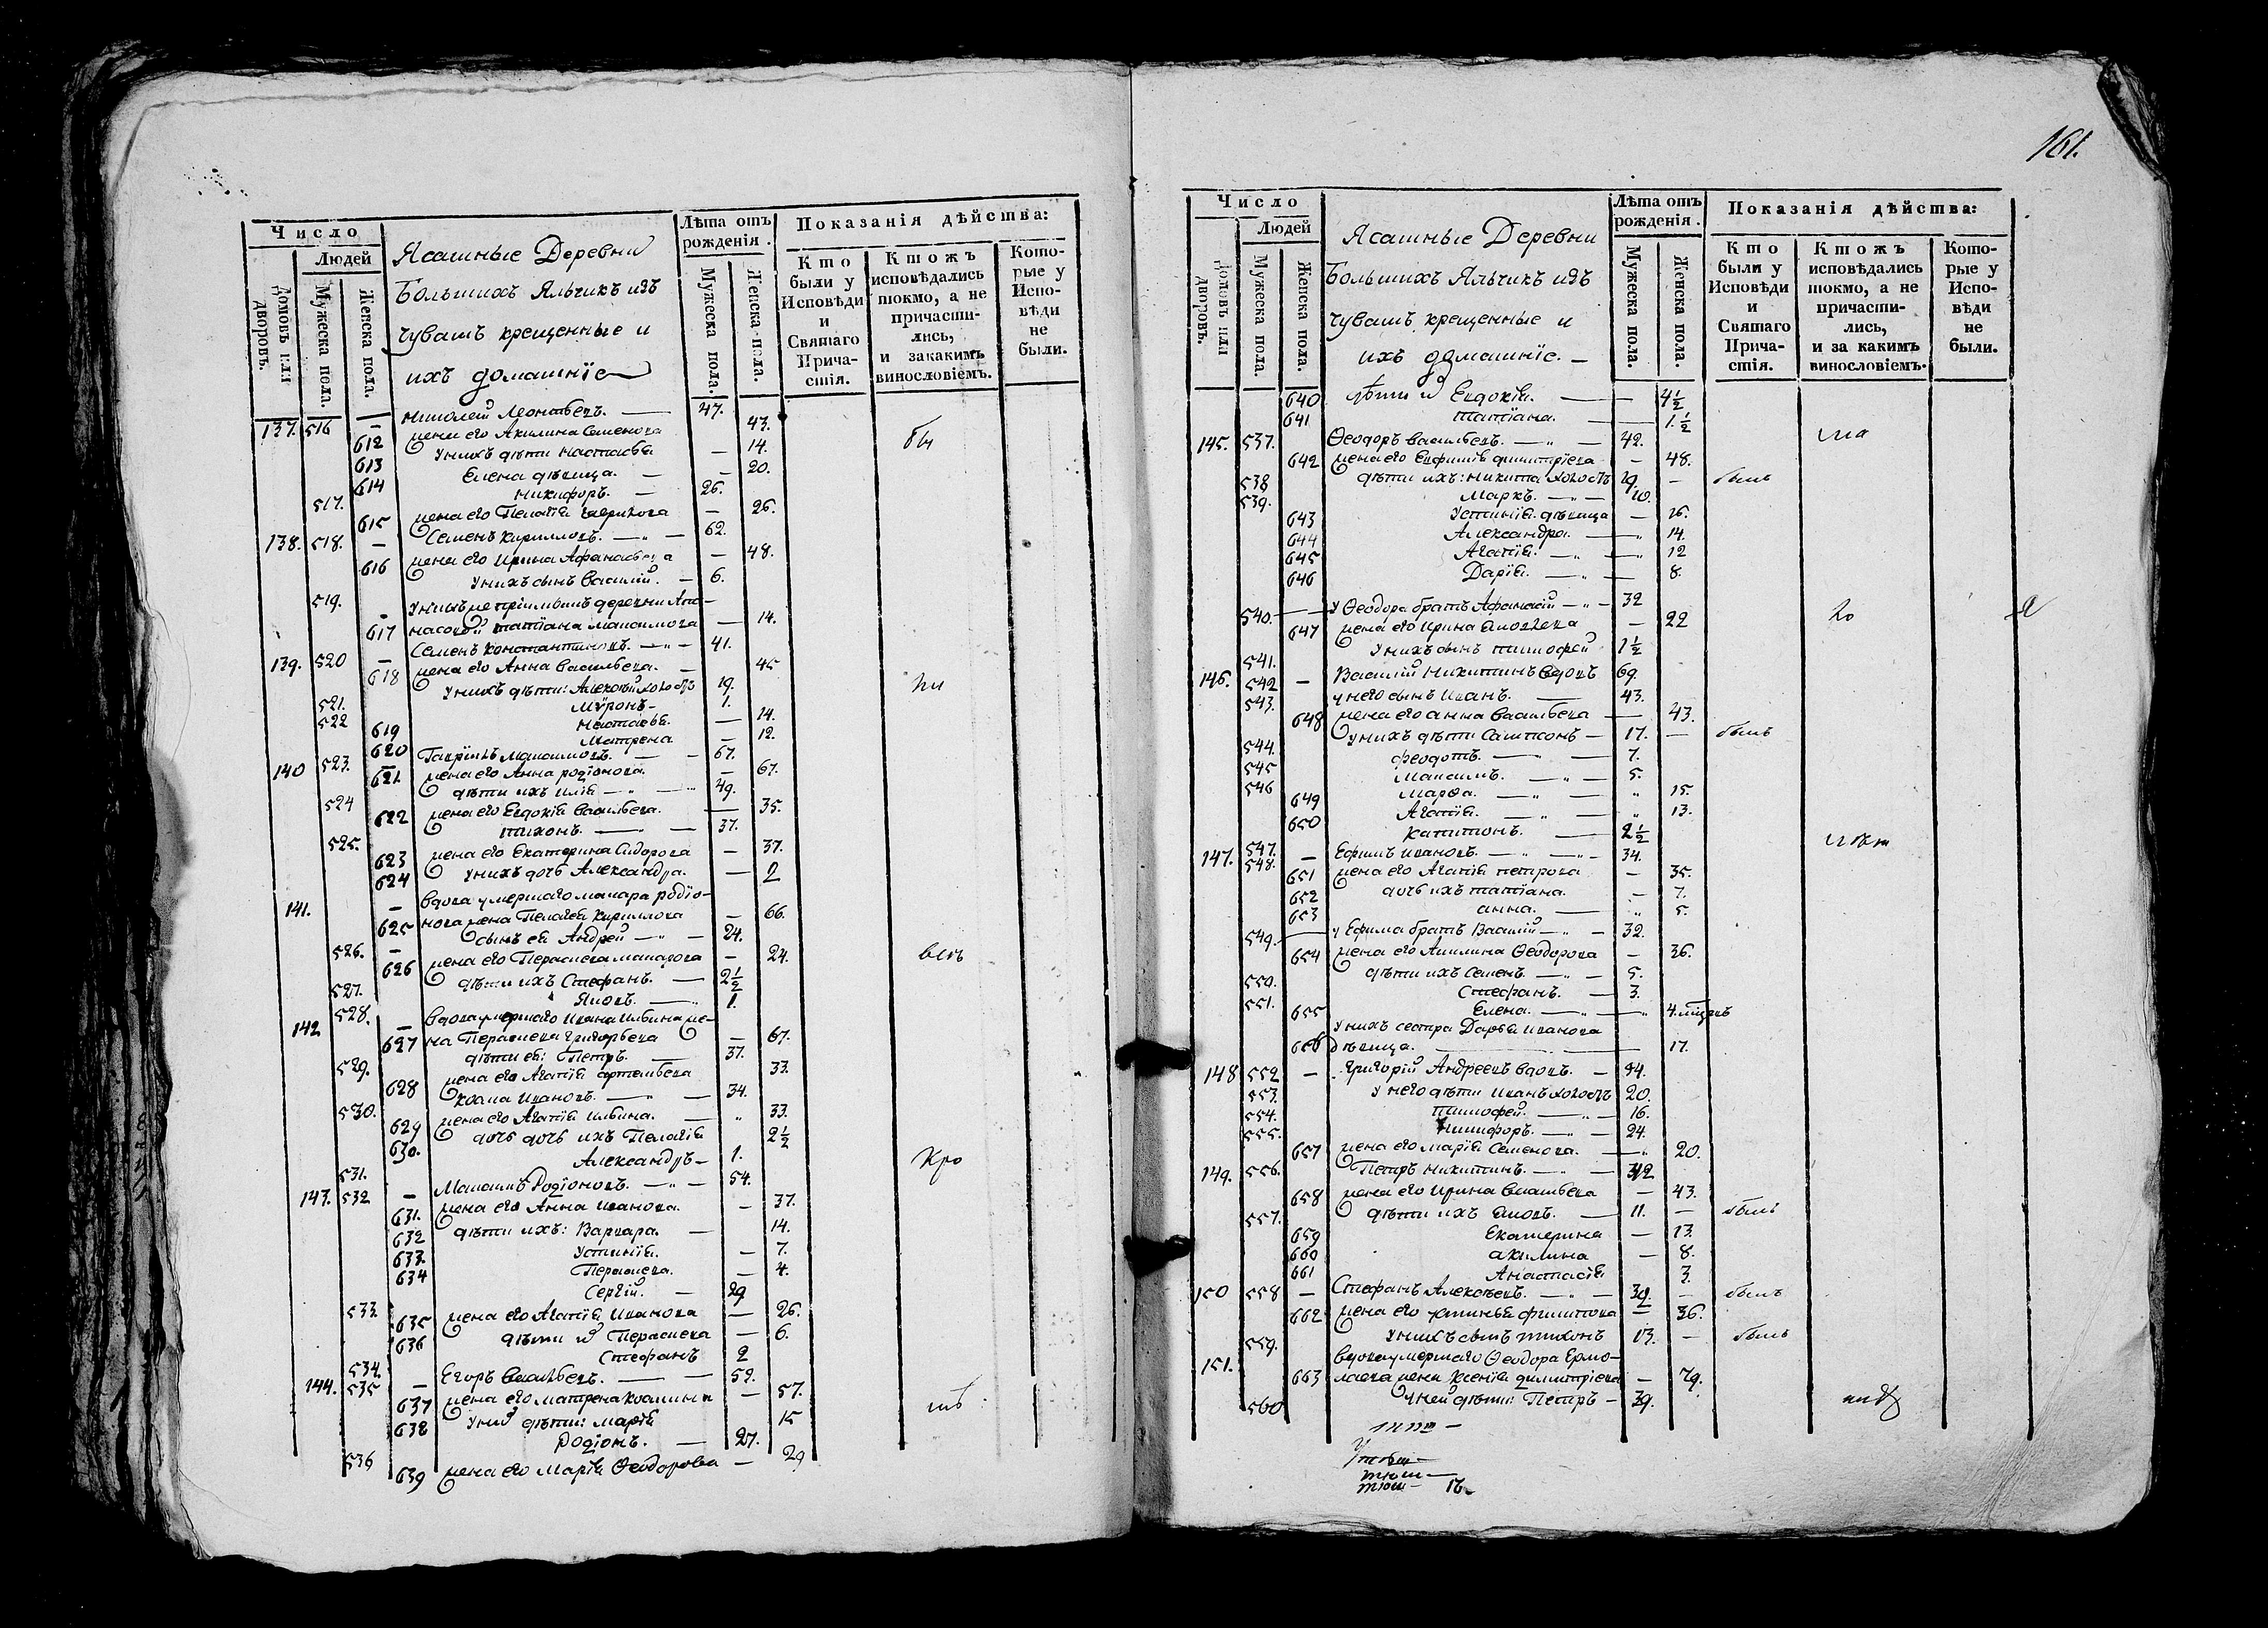 Число
Людей
Домовъ или дворовъ.
Мужеска пола.
Женска пола.
Ясашные Деревни
Большихъ Яльчикъ изъ
чувашъ крещенные и
ихъ домашніе
Лѣта отъ рожденія.
Мужеска пола.
Женска пола.
Показанія дѣйства:
Кто были у Исповѣди и Святаго Причастія.
Ктожъ исповѣдались токмо, а не причастились, и закакимъ винословіемъ.
Которые у Исповѣди не были.
137. 516 — Николай Леонтьевъ. — 47.
612 жена его Акилина Семенова 43.
613 у нихъ дѣти Настасья — 14.
614 Елена дѣвица. — 20.
517. Никифоръ. — 26.
615 жена его Пелагія — 26.
138. 518. — Семенъ Кирилловъ. — 62.
616 жена его Ирина Афанасьева — 48.
519. у нихъ сынъ Василій. — 6.
617 Татіана Максимова — 14.
139. 520 — Семенъ Константиновъ. — 41.
618 жена его Анна Васильева. — 45
521. у нихъ дѣти: Алексѣй холостъ 19.
522 Мѵронъ — 1.
619 Настасья. — 14.
620 Матрена — 12.
140 523. — Гавріилъ Максимовъ. — 67.
621 жена его Анна Родіонова. — 67.
524 дѣти ихъ Илія — 49.
622 жена его Евдокія Васильева. — 35.
525. Тихонъ. — 37.
623 жена его Екатерина Сидорова — 37.
624 у нихъ дочь Александра. — 2
141. — вдова умершаго Макара Родіо-
625 нова жена Пелагія Кириллова — 66.
526. — сынъ ея Андрей — 24.
626 жена его Параскева Макарова — 24.
527. дѣти ихъ Стефанъ. — 2½
528. Яковъ. — 1.
142 — вдова умершаго Ивана Ильина же-
627 на Параскева Григорьева — 67.
529. дѣти ея: Петръ. — 37.
628 жена его Агапія Артемьева 33.
530. Козма Ивановъ. — 34.
629 жена его Агапія Ильина. — 33.
630. дочь ихъ Пелагія 2½
531. Александръ — 1.
143. 532 — Максимъ Родіоновъ. — 54.
631. жена его Анна Иванова. — 37.
632 дѣти ихъ: Варвара. — 14.
633. Устинія. — 7.
634 Параскева. — 4.
533. Сергій. — 29
635 жена его Агапія Иванова — 26.
636 дѣти Параскева — 6.
534. Стефанъ 2
144. 535 — Егоръ Васильевъ. — 59.
637 жена его Матрена Козмина — 57.
638 дѣти: Марія 15
536 Родіонъ. — 27.
639 жена его Марія Ѳеодорова — 29
161.
Число
Людей
Домовъ или дворовъ.
Мужеска пола.
Женска пола.
Ясашные Деревни
Большихъ Яльчикъ изъ
чувашъ крещенные и
ихъ домашніе. —
Лѣта отъ рожденія.
Мужеска пола.
Женска пола.
Показанія дѣйства:
Кто были у Исповѣди и Святаго Причастія.
Ктожъ исповѣдались токмо, а не причастились, и за какимъ винословіемъ.
Которые у Исповѣди не были.
640 дѣти Евдокія. — 4½
641 Татіана. — 1½
145. 537. Ѳеодоръ Васильевъ. — 42.
642 жена его Евфимія Димитріева — 48.
538 дѣти ихъ: Никита холостъ 19. — былъ
539. Маркъ. — 10.
643 Устинія дѣвица — 16.
644 Александра. — 14.
645 Агапія. — 12
646 Дарія. — 8.
540. — у Ѳеодора братъ Афанасій — 32
647 жена его Ирина Яковлева — 22
541. у нихъ сынъ Тимофей 1½
146. 542 — Василій Никитинъ вдовъ 69.
543. у него сынъ Иванъ. — 43.
648 жена его Анна Васильева — 43.
544. у нихъ дѣти Сампсонъ — 17. — былъ
545 Федотъ. — 7.
546 Максимъ. — 5.
649 Марѳа. — 15.
650 Агапія. — 13.
547. Капитонъ. — 2½
147. 548. — Ефимъ Ивановъ. — 34.
651 жена его Агапія Петрова — 35.
652 дочь ихъ Татіана. — 7.
653 Анна. — 5.
549. — у Ефима братъ Василій — 32.
654 жена его Акилина Ѳеодорова — 36.
550. дѣти ихъ Семенъ. — 5.
551. Стефанъ. — 3.
655 Елена. — 4.
у нихъ сестра Дарья Иванова
656 дѣвица. — 17.
148 552 — Григорій Андреевъ вдовъ. — 94.
553. у него дѣти Иванъ холостъ 20.
554. Тимофей. — 16.
555. Никифоръ. — 24.
657 жена его Марія Семенова. — 20.
149. 556. Петръ Никитинъ. — 42
658 жена его Ирина Васильева — 43.
557. дѣти ихъ Яковъ. — 11. — былъ
659 Екатерина — 13.
660 Акилина — 8.
661 Анастасія 3.
150 558 — Стефанъ Алексѣевъ. — 39. — былъ
662 жена его Устинья Филипова — 36.
559. у нихъ сынъ Тихонъ 13. — былъ
151. вдова умершаго Ѳеодора Ермо-
663 лаева жена Ксенія Димитріева — 79.
560 у ней дѣти: Петръ — 39.